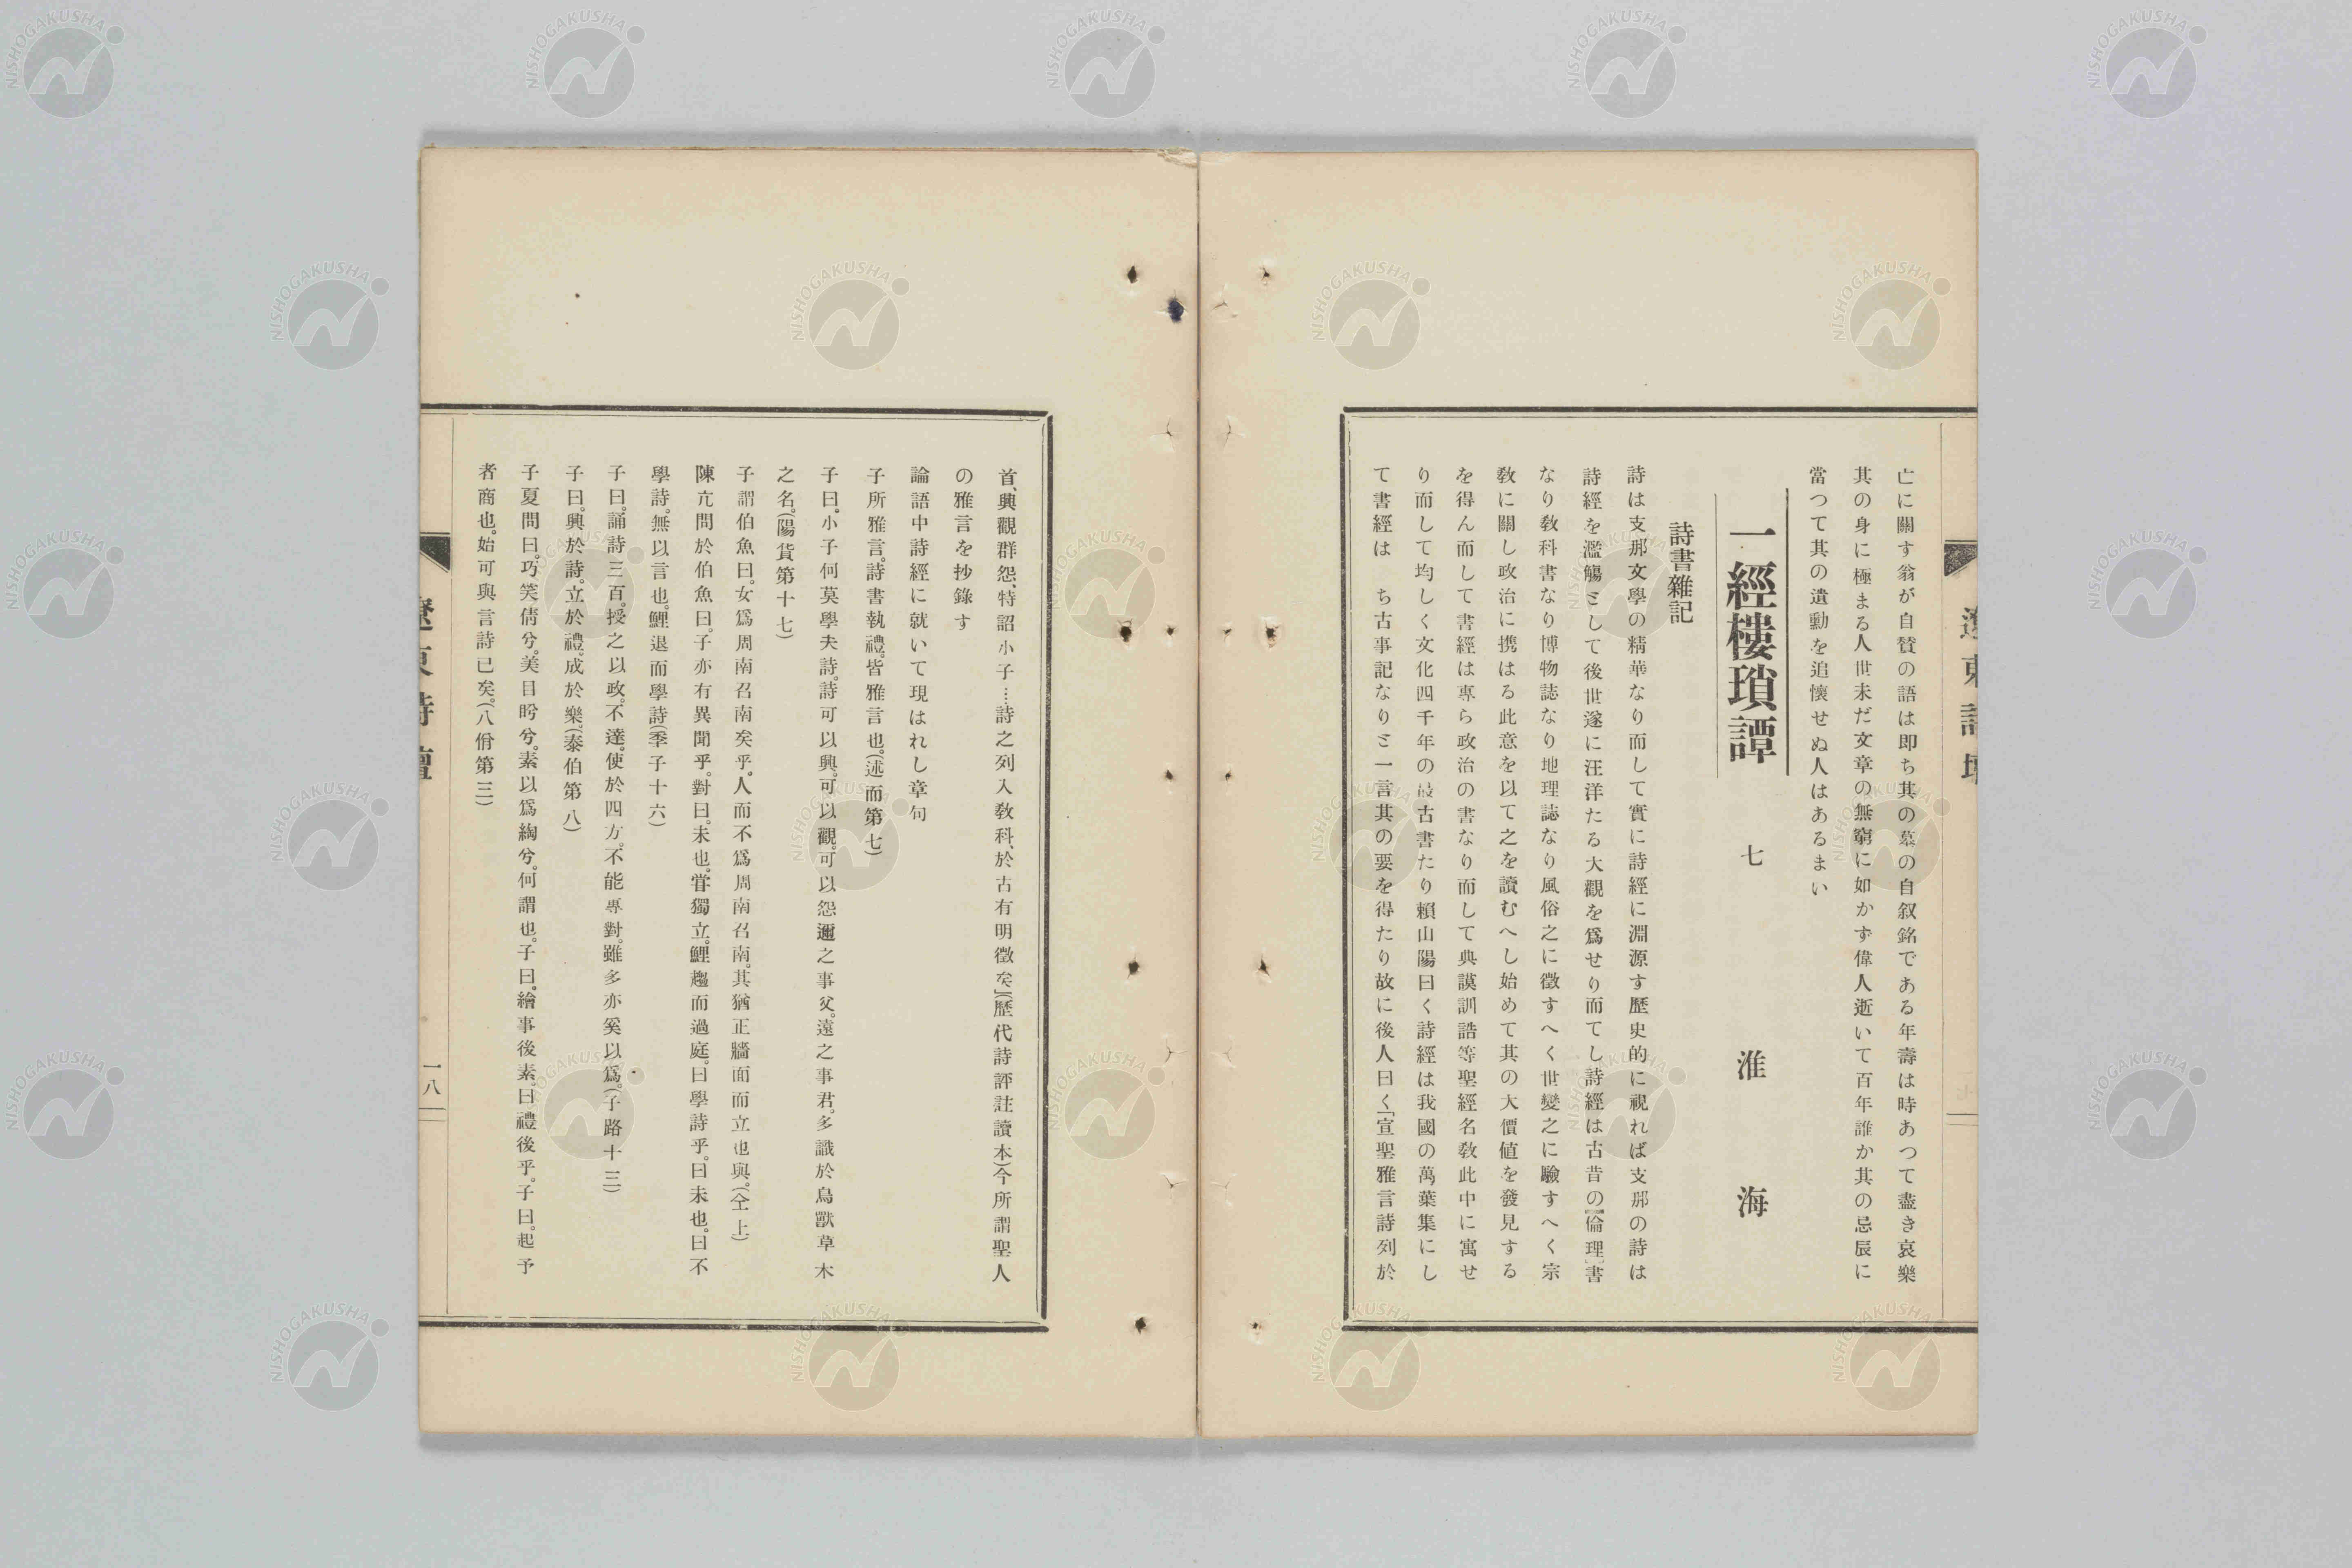 亡に關す翁が自賛の語は即ち其の墓の自叙銘である年壽は時あつて盡き哀樂
其の身に極まる人世未だ文章の無窮に如かず偉人逝いて百年誰か其の忌辰に
當つて其の遺勳を追懷せぬ人はあるまい
一經樓瑣譚 七 淮海
詩書雜記
詩は支那文學の精華なり而して實に詩經に淵源す歷史的に視れば支那の詩は
詩經を濫觴として後世遂に汪洋たる大觀を爲せり而てし詩經は古昔の【倫理】書
なり教科書なり博物誌なり地理誌なり風俗之に徵すへく世變之に驗すへく宗
敎に關し政治に携はる此意を以て之を讀むへし始めて其の大價値を發見する
を得ん而して書經は專ら政治の書なり而して典謨訓誥等聖經名敎此中に寓せ
り而して均しく文化四千年の最古書たり賴山陽曰く詩經は我國の萬葉集にし
て書經は ち古事記なりと一言其の要を得たり故に後人曰く「宣聖雅言詩列於
首、興觀群怨、特詔小子…詩之列入教科、於古有明徵矣」(歷代詩評註讀本)今所謂聖人
の雅言を抄錄す
論語中詩經に就いて現はれし章句
子所雅言。詩書執禮。皆雅言也。(述而第七)
子曰。小子何莫學夫詩。詩可以興。可以觀。可以怨邇之事父。遠之事君。多識於鳥獸草木
之名。(陽貨第十七)
子謂伯魚曰。女爲周南召南矣乎。人而不爲周南召南。其猶正牆面而立也與。(仝上)
陳亢問於伯魚曰。子亦有異聞乎。對曰。未也。甞獨立。鯉趨而過庭。曰學詩乎。曰未也。曰不
學詩。無以言也。鯉退而學詩(季子十六)
子曰。誦詩三百。授之以政。不達。使於四方。不能專對。雖多亦奚以爲。(子路十三)
子曰。興於詩。立於禮。成於樂。(泰伯第八)
子夏問曰。巧笑倩兮。美目盼兮。素以爲絢兮。何謂也。子曰。繪事後素。曰禮後乎。子曰。起予
者商也。始可與言詩已矣。(八佾第三)
遼東詩壇
一八